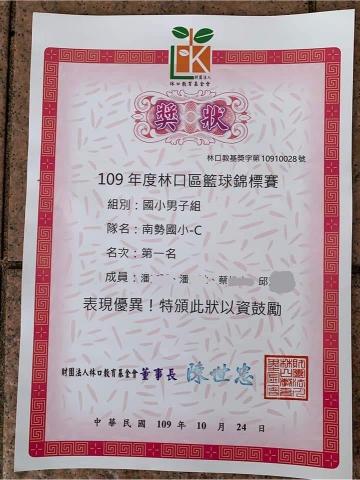 LK
財團法人
林口教育基金會
獎狀
林口教基獎字第10910028號
109年度林口區籃球錦標賽
組別：國小男子組
隊名：南勢國小-C
名次：第一名
成員：潘、潘、蔡 邱
表現優異！特頒此狀以資鼓勵
財團法人林口教育基金會董事長 陳世忠
中華民國 109 年 10 月 24 日